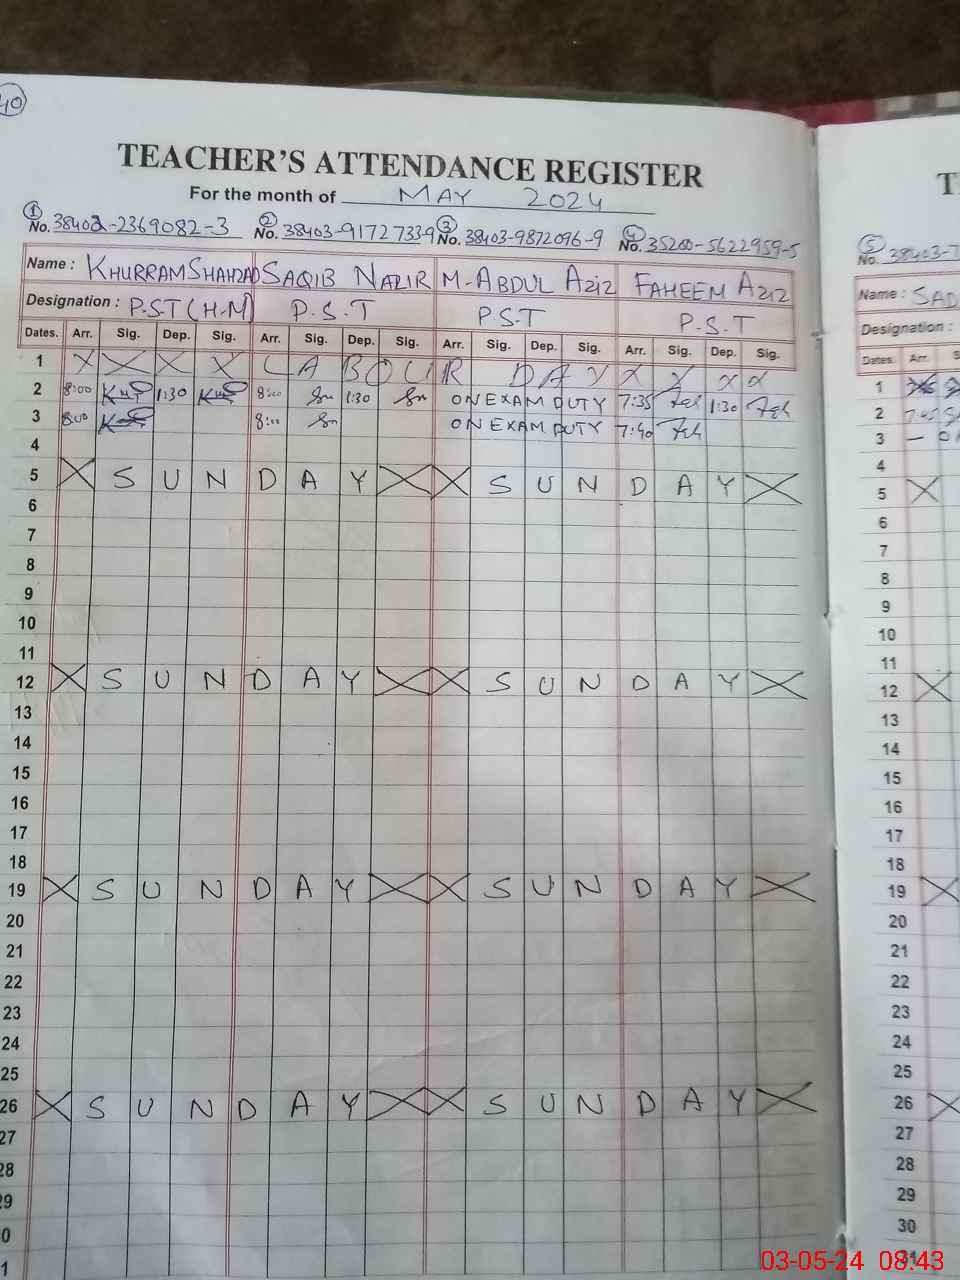 40
TEACHER'S ATTENDANCE REGISTER
For the month of MAY 2024
① No. 38402-2369082-3 ② No. 38403-9172733-9 ③ No. 38403-9872096-9 ④ No. 35200-5622959-5
Name : KHURRAM SHAHZAD SAQIB NAZIR M-ABDUL AZIZ FAHEEM AZIZ
Designation : P.S.T (H-M) P.S.T P.S.T P.S.T
Dates. Arr. Sig. Dep. Sig. Arr. Sig. Dep. Sig. Arr. Sig. Dep. Sig. Arr. Sig. Dep. Sig.
1 X X X X L A B O U R D A Y X X X X
2 8:00 1:30 8:00 1:30 ON EXAM DUTY 7:35 1:30
3 8:00 8:00 ON EXAM DUTY 7:40
4
5 X S U N D A Y X X S U N D A Y X
6
7
8
9
10
11
12 X S U N D A Y X X S U N D A Y X
13
14
15
16
17
18
19 X S U N D A Y X X S U N D A Y X
20
21
22
23
24
25
26 X S U N D A Y X X S U N D A Y X
27
28
29
30
31
⑤ No. 38403-7
Name : SAD
Designation :
Dates. Arr.
1
2 7:45
3 —
4
5 X
6
7
8
9
10
11
12 X
13
14
15
16
17
18
19 X
20
21
22
23
24
25
26 X
27
28
29
30
31
03-05-24 08:43